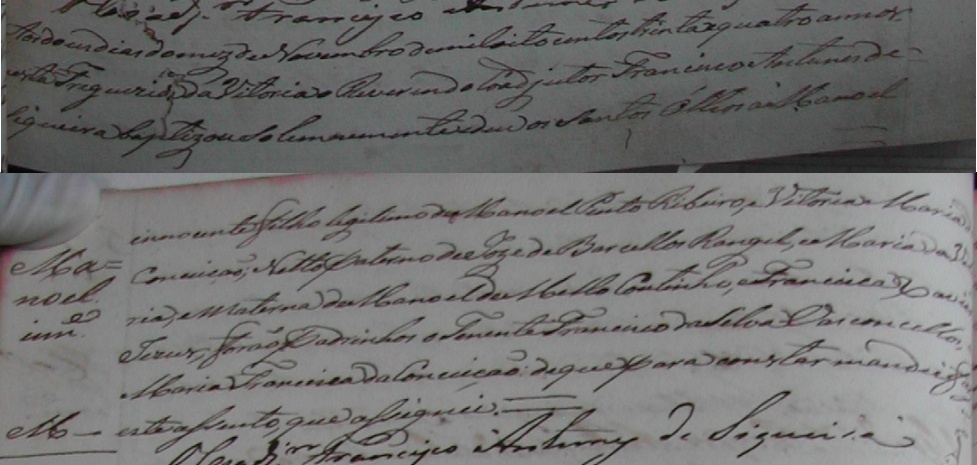 Francisco Antunes de
dias do mez de Novembro de mil oito centos trinta e quatro annos
nesta Freguezia da Vitoria o Reverendo Coadjutor Francisco Antunes de
Siqueira baptizou solemnemente e deu os Santos Oleos a Manoel
innocente filho legitimo de Manoel Pinto Ribeiro, e Vitoria Maria da
Conceicaõ; Netto paterno de Joze de Barcellos Rangel, e Maria da Vito
ria, e Materna de Manoel de Mello Coutinho, e Francisca
Jezus, foraõ Padrinhos o Tenente Francisco da Silva Vasconcellos,
Maria Francisca da Conceicaõ: de que para constar mandei
este assento, que assignei.
Francisco Antunes de Siqueira
Ma=
noel.
inn.e
M—